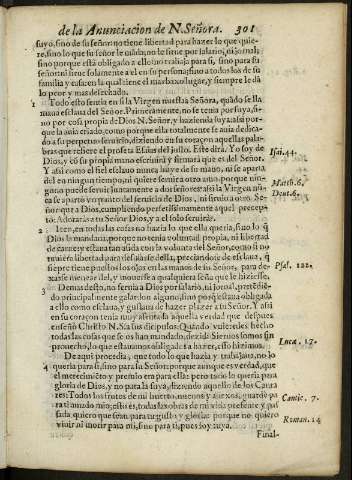 de la Anunciacion de N. Señora. 301
suyo, sino de su señor: no tiene libertad para hazer lo que quiere,
sino lo que su señor le mãda, no le sirue por salario, ni jornal;
sino porque está obligado a ello: no trabaja para si, sino para su
señor: ni sirue solamente a el en su persona; sino a todos los de su
familia y casa: en la qual tiene el mas baxo lugar, y siempre le dã
lo peor y mas desechado.
1 Todo esto sentia en si la Virgen nuestra Señora, quãdo se llamaua
esclaua del Señor. Primeramente, no se tenia por suya, sino
por cosa propia de Dios N. Señor, y hazienda suya: assi porque
la auia criado, como porque ella totalmente se auia dedicado
a su perpetuo seruicio, diziendo en su coraçon aquellas palabras
que refiere el profeta Esaias del justo. Este dirà, Yo soy de
Dios, y cõ su propia mano escriuirá y firmarà que es del Señor. Isai. 44.
Y assi como el fiel esclauo nunca huye de su mano, ni se aparta
del en ningun tiempo, ni quiere seruir a otro amo; porque ninguno
puede seruir juntamente a dos señores: assi la Virgen nũca Matth. 6.
se apartò vn punto del seruicio de Dios, ni siruio a otro Señor Deut. 6.
que a Dios, cumpliendo perfectissimamente aquel precepto:
Adoraràs a tu Señor Dios, y a el solo seruiràs.
2 Iten, en todas las cosas no hazia lo que ella queria, sino lo q̃
Dios la mandaua, porque no tenia voluntad propia, ni libertad
de carne; y estaua tan asida con la voluntad del Señor, como si no
tuuiera libertad para desasirse della, preciandose de esclaua, q̃
siẽpre tiene puestos los ojos en las manos de su Señor, para dexarse Psal. 122.
mandar del, y mouerse a qualquiera seña que le hiziesse.
3 Demas desto, no seruia a Dios por salario, ni jornal, pretendiẽdo
principalmente galardon alguno, sino porq̃ estaua obligada
a ello como esclaua, y gustaua de hazer plazer a su Señor. Y assi
en su coraçon tenia muy assentada aquella verdad que despues
enseñò Christo N. S. a sus dicipulos: Quando vuieredes hecho
todas las cosas que se os han mandado, dezid: Sieruos somos sin Luca. 17.
prouecho, lo que estauamos obligados a hazer, esso hizimos.
4 De aqui procedia, que todo lo que hazia y trabajaua, no lo
queria para si, sino para su Señor: porque aunque es verdad, que
el merecimiẽto y premio era para ella: pero todo lo queria para
gloria de Dios, y no para la suya, diziendo aquello de los Cantares:
Todos los frutos de mi huerto, nueuos y añexos, guardè para Cantic. 7.
ti amado mio; esto es, todas las obras de mi vida presente y passada
quiero que sean para tu gusto y gloria: porque no quiero Roman. 14
viuir ni morir para mi, sino para ti, pues soy tuya.
Final-